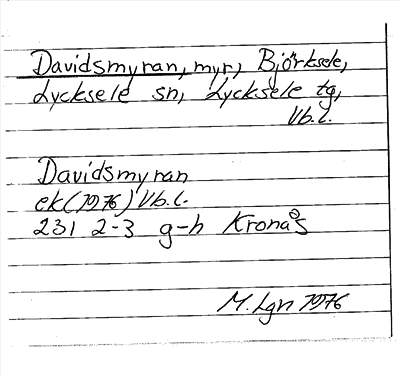 Davidsmyran, myr, Björksele,
Lycksele sn, Lycksele tg,
Vb.l.
Davidsmyran
ek(1976) Vb.l.
231 2-3 g-h Kronås
M. Lgn 1976